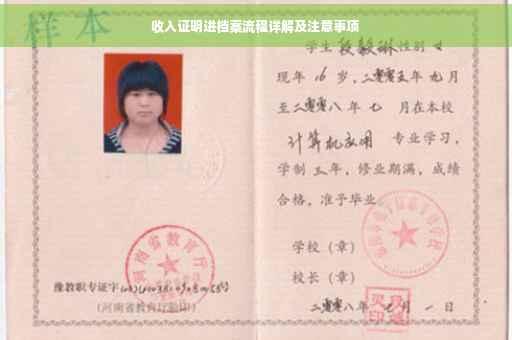 收入证明进档案流程详解及注意事项
样本
学生 段毅琳 性别 女
现年 16 岁，二零零五年 九 月
至二零零八 年 七 月在本校
计算机应用 专业学习，
学制 三 年，修业期满，成绩
合格，准予毕业
学校（章）
校长（章）
二零零八年 七 月 一 日
河南省教育厅
豫教职专证字
（河南省教育厅验印）